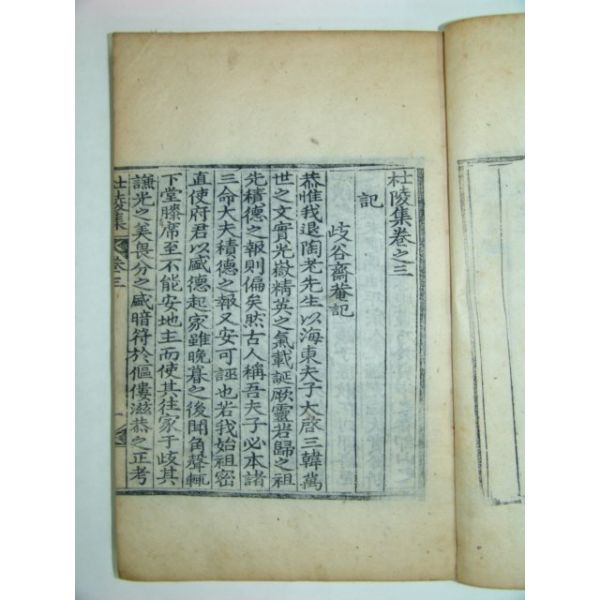 杜陵集卷之三
記
歧谷齋菴記
恭惟我退陶老先生以海東夫子大啓三韓萬
世之文實光嶽精英之氣載誕厥靈若歸之祖
先積德之報則偏矣然古人稱吾夫子必本諸
三命大夫積德之報又安可誣也若我始祖密
直使府君以盛德起家雖晚暮之後聞角聲輒
下堂縢席至不能安地主而使其往家于歧其
謙光之美畏分之盛暗符於傴僂滋恭之正考
杜陵集 卷三 一